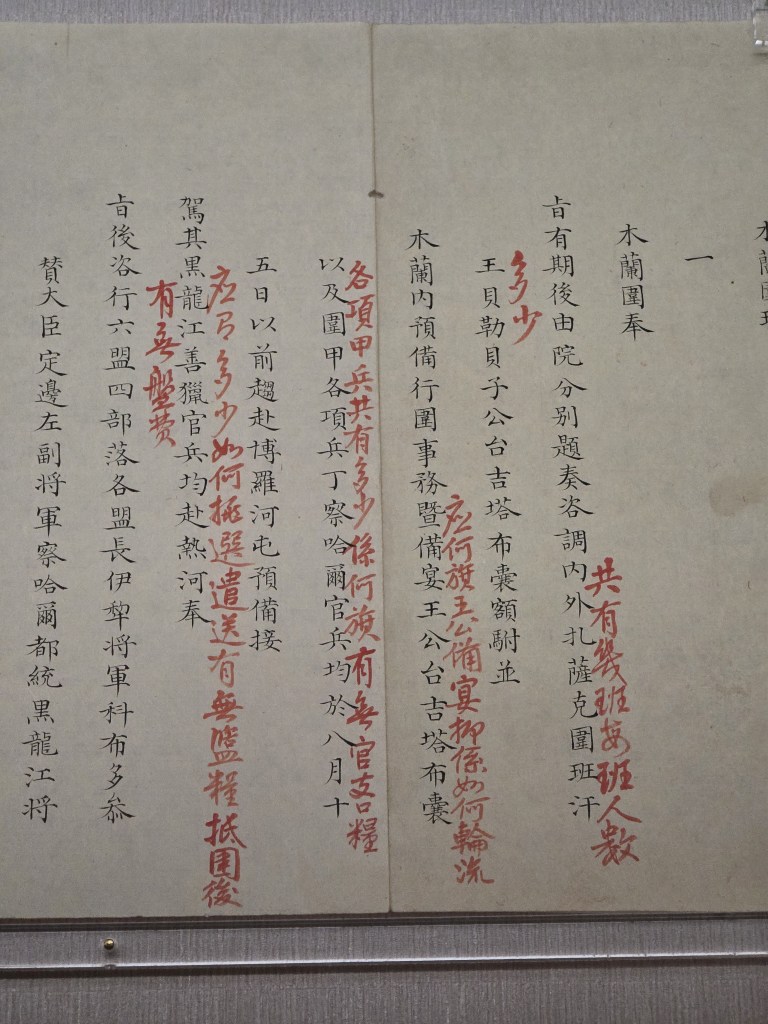 木蘭圍班
一
木蘭圍奉
旨有期後由院分别題奏咨調内外扎薩克圍班汗
共有幾班每班人數
多少
王貝勒貝子公台吉塔布囊額駙並
應何旗王公備宴抑係如何輪流
木蘭内預備行圍事務暨備宴王公台吉塔布囊
各項甲兵共有多少係何旗有無官支口糧
以及圍甲各項兵丁察哈爾官兵均於八月十
五日以前趨赴博羅河屯預備接
應否多少如何揀選遣送有無鹽糧抵圍後
有無盤费
駕其黑龍江善獵官兵均赴熱河奉
旨後咨行六盟四部落各盟長伊犂將軍科布多叅
賛大臣定邊左副将軍察哈爾都統黑龍江将